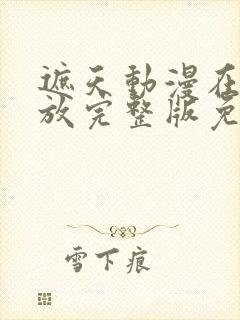 遮天動漫在
放完整版免
雪下痕